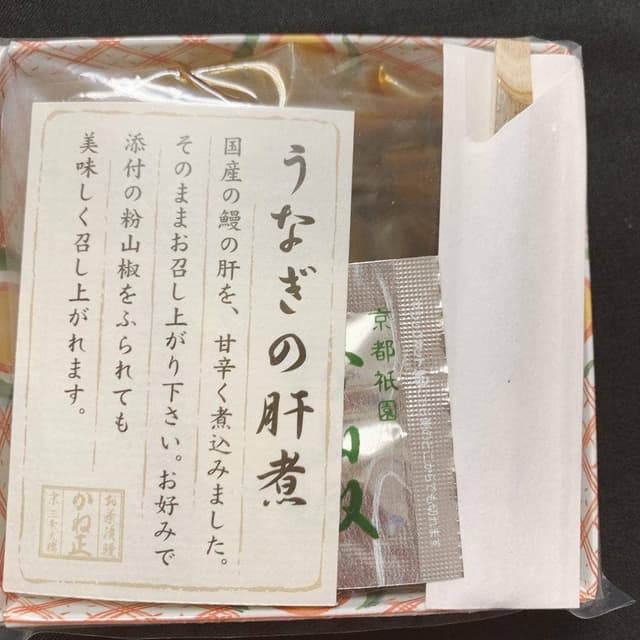 うなぎの肝煮
国産の鰻の肝を、甘辛く煮込みました。
そのままお召し上がり下さい。お好みで
添付の粉山椒をふられても
美味しく召し上がれます。
お茶漬鰻
かね正
京都祇園